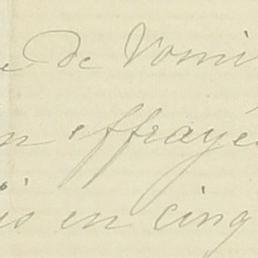 e de Vomi
n effrayé
is en cinq